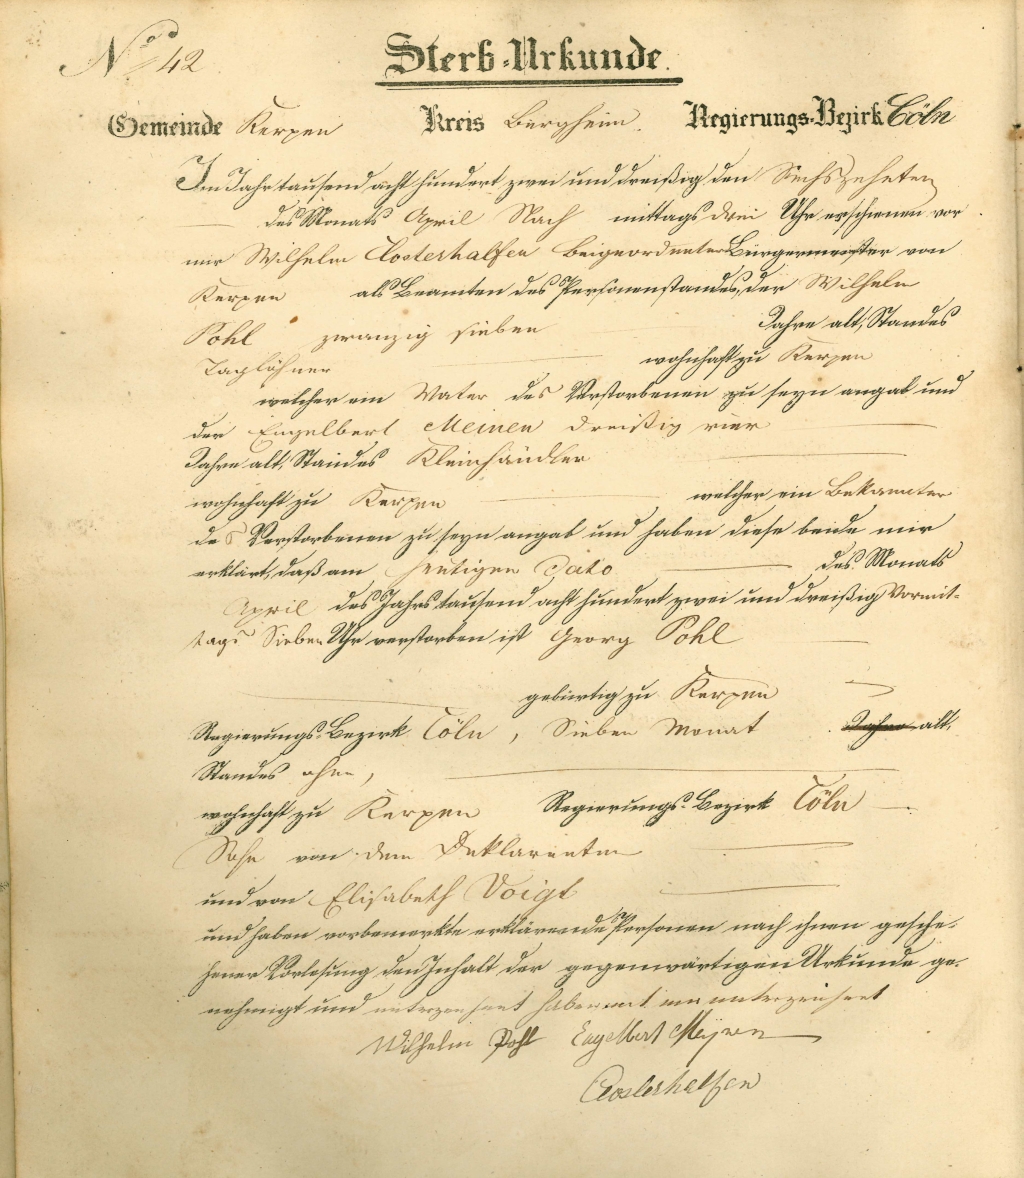 No 42
Sterb-Urkunde.
Gemeinde Kerpen Kreis Bergheim. Regierungs-Bezirk Cöln
Im Jahr tausend acht hundert zwei und dreißig den Sechszehnten
des Monats April Nach mittags drei Uhr erschienen vor
mir Wilhelm Oosterhalfen Beigeordneter Bürgermeister von
Kerpen als Beamten des Personenstandes, der Wilhelm
Pohl zwanzig sieben Jahre alt, Standes
Taglöhner wohnhaft zu Kerpen
welcher ein Vater des Verstorbenen zu seyn angab und
der Engelbert Meinen dreißig vier
Jahre alt, Standes Kleinhändler
wohnhaft zu Kerpen welcher ein Bekannter
des Verstorbenen zu seyn angab und haben diese beide mir
erklärt, daß am heutigen Dato des Monats
April des Jahrs tausend acht hundert zwei und dreißig Vormit-
tags Sieben Uhr verstorben ist Georg Pohl
gebürtig zu Kerpen
Regierungs-Bezirk Cöln, Sieben Monat Jahre alt,
Standes ohne,
wohnhaft zu Kerpen Regierungs-Bezirk Cöln
Sohn von dem Deklaranten
und von Elisabeth Voigt
und haben vorbemerkte erklärende Personen nach ihnen gesche-
hener Vorlesung den Inhalt der gegenwärtigen Urkunde ge-
nehmigt und unterzeichnet
Wilhelm Pohl Engelbert Meynen
Oosterhalfen